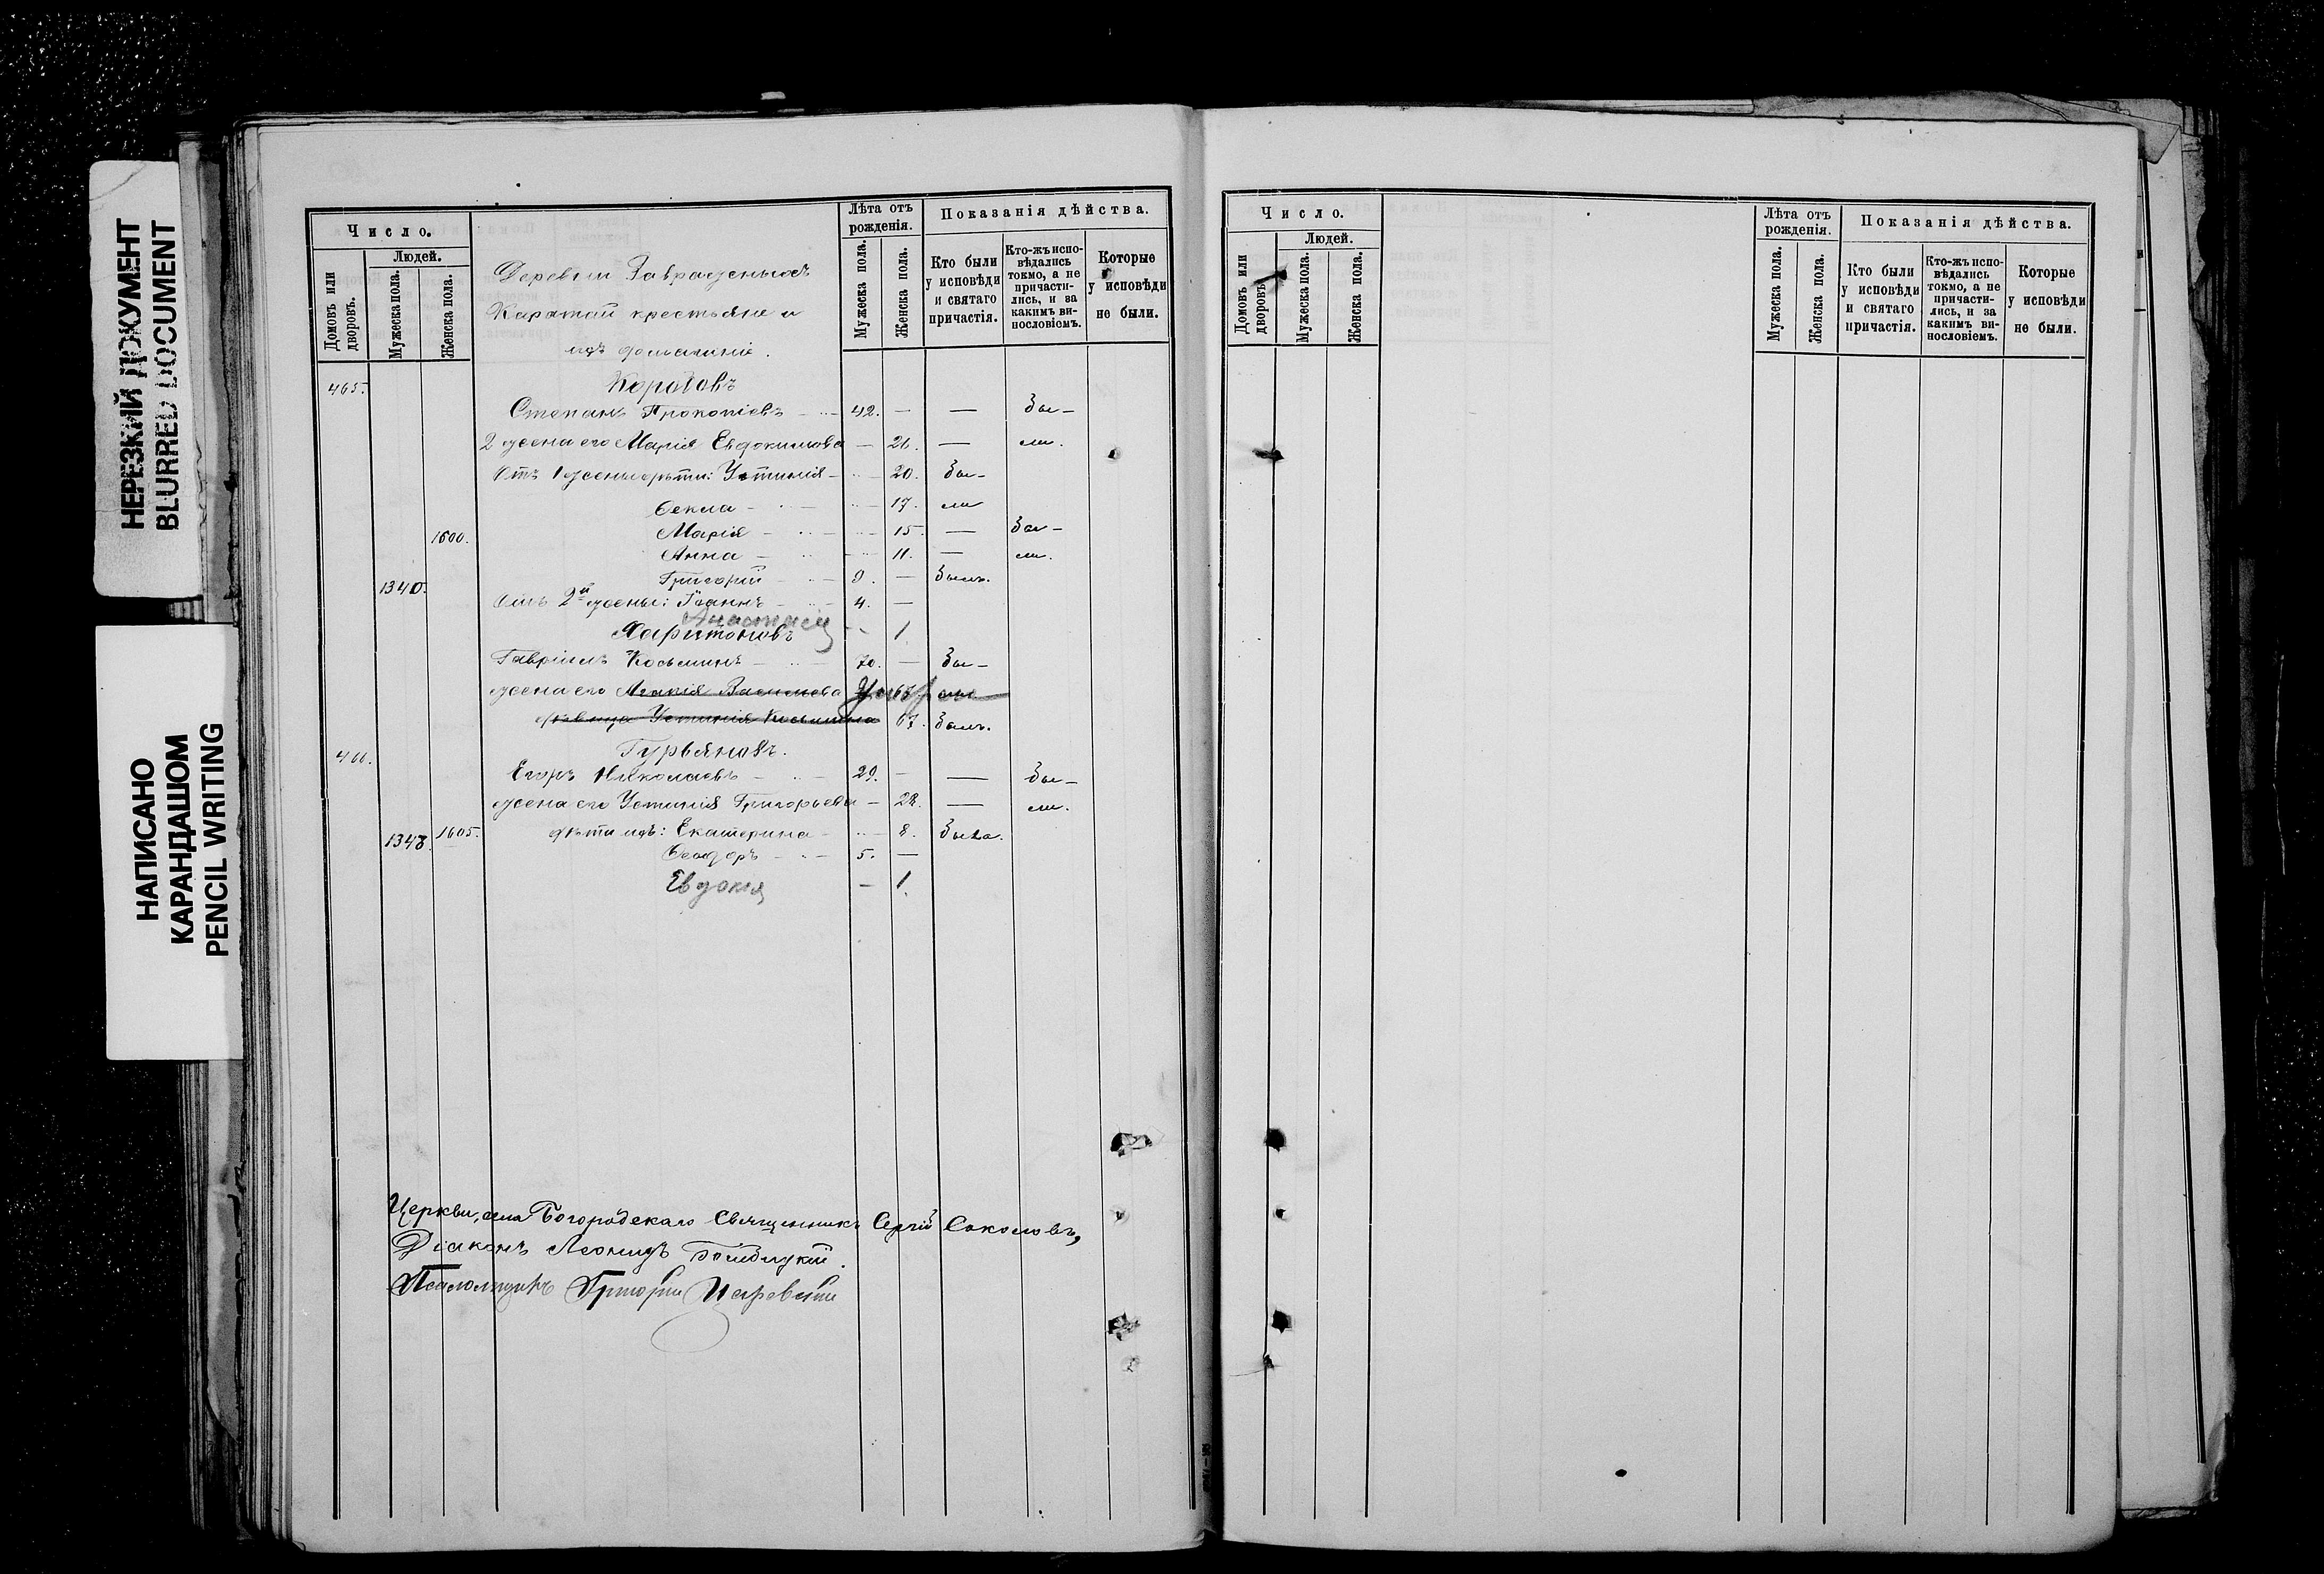 НЕРЕЗКИЙ ДОКУМЕНТ
BLURRED DOCUMENT
НАПИСАНО
КАРАНДАШОМ
PENCIL WRITING
Число.
Людей.
Домовъ или дворовъ.
Мужеска пола.
Женска пола.
Лѣта отъ рожденія.
Мужеска пола.
Женска пола.
Показанія дѣйства.
Кто были у исповѣди и святаго причастія.
Кто-жъ исповѣдались токмо, а не причастились, и за какимъ винословіемъ.
Которые у исповѣди не были.
Деревни
Каратай крестьяне и
ихъ домашніе.
465. Коротовъ
Степанъ Прокопіевъ 42. — — Бы-
2 жена его Марія Евдокимова — 26. — ли.
Отъ 1 жены дѣти: Устинія 20. Бы-
Ѳекла 17. ли
1600. Марія 15 — Бы-
Анна 11. — ли.
1340. Григорій 9. — Былъ.
Отъ 2й жены: Іоаннъ 4. —
Анастасія 1
Харитоновъ
Гавріилъ Косьминъ 70. — Бы-
жена его Агапія Васильева ли
дѣвица Устинія Косьмина 67. Былъ.
Гурьяновъ.
Егоръ Николаевъ 29. — — Бы-
жена его Устинія Григорьева — 28. — ли.
1348. 1605. дѣти ихъ: Екатерина 8. Была.
Ѳеодоръ 5. —
Евдокія — 1.
Церкви села Богородскаго Священникъ Сергій Соколовъ,
Діаконъ Леонидъ
Псаломщикъ Григорій
Число.
Людей.
Домовъ или дворовъ.
Мужеска пола.
Женска пола.
Лѣта отъ рожденія.
Мужеска пола.
Женска пола.
Показанія дѣйства.
Кто были у исповѣди и святаго причастія.
Кто-жъ исповѣдались токмо, а не причастились, и за какимъ винословіемъ.
Которые у исповѣди не были.